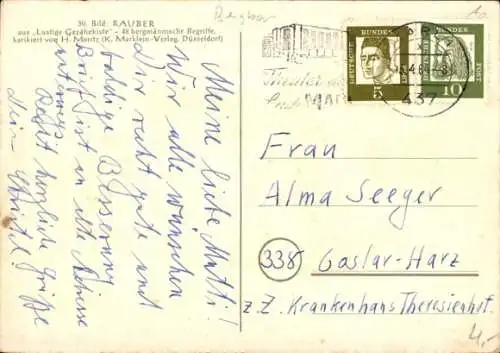 30. Bild: RAUBER
aus „Lustige Gezähekiste" - 48 bergmännische Begriffe,
karikiert von H. Moritz (K. Marklein-Verlag, Düsseldorf)
Meine liebe Mutti!
Wir alle wünschen
Dir recht gute und
Besserung
Brief ist an alte Adresse
unterwegs.
Recht herzliche Grüße
Dein
Bergbau
DEUTSCHE BUNDESPOST
5
DEUTSCHE BUNDESPOST
10
Theater
MARL
437
Frau
Alma Seeger
338 Goslar-Harz
z. Z. Krankenhaus Theresienhof.
4,-